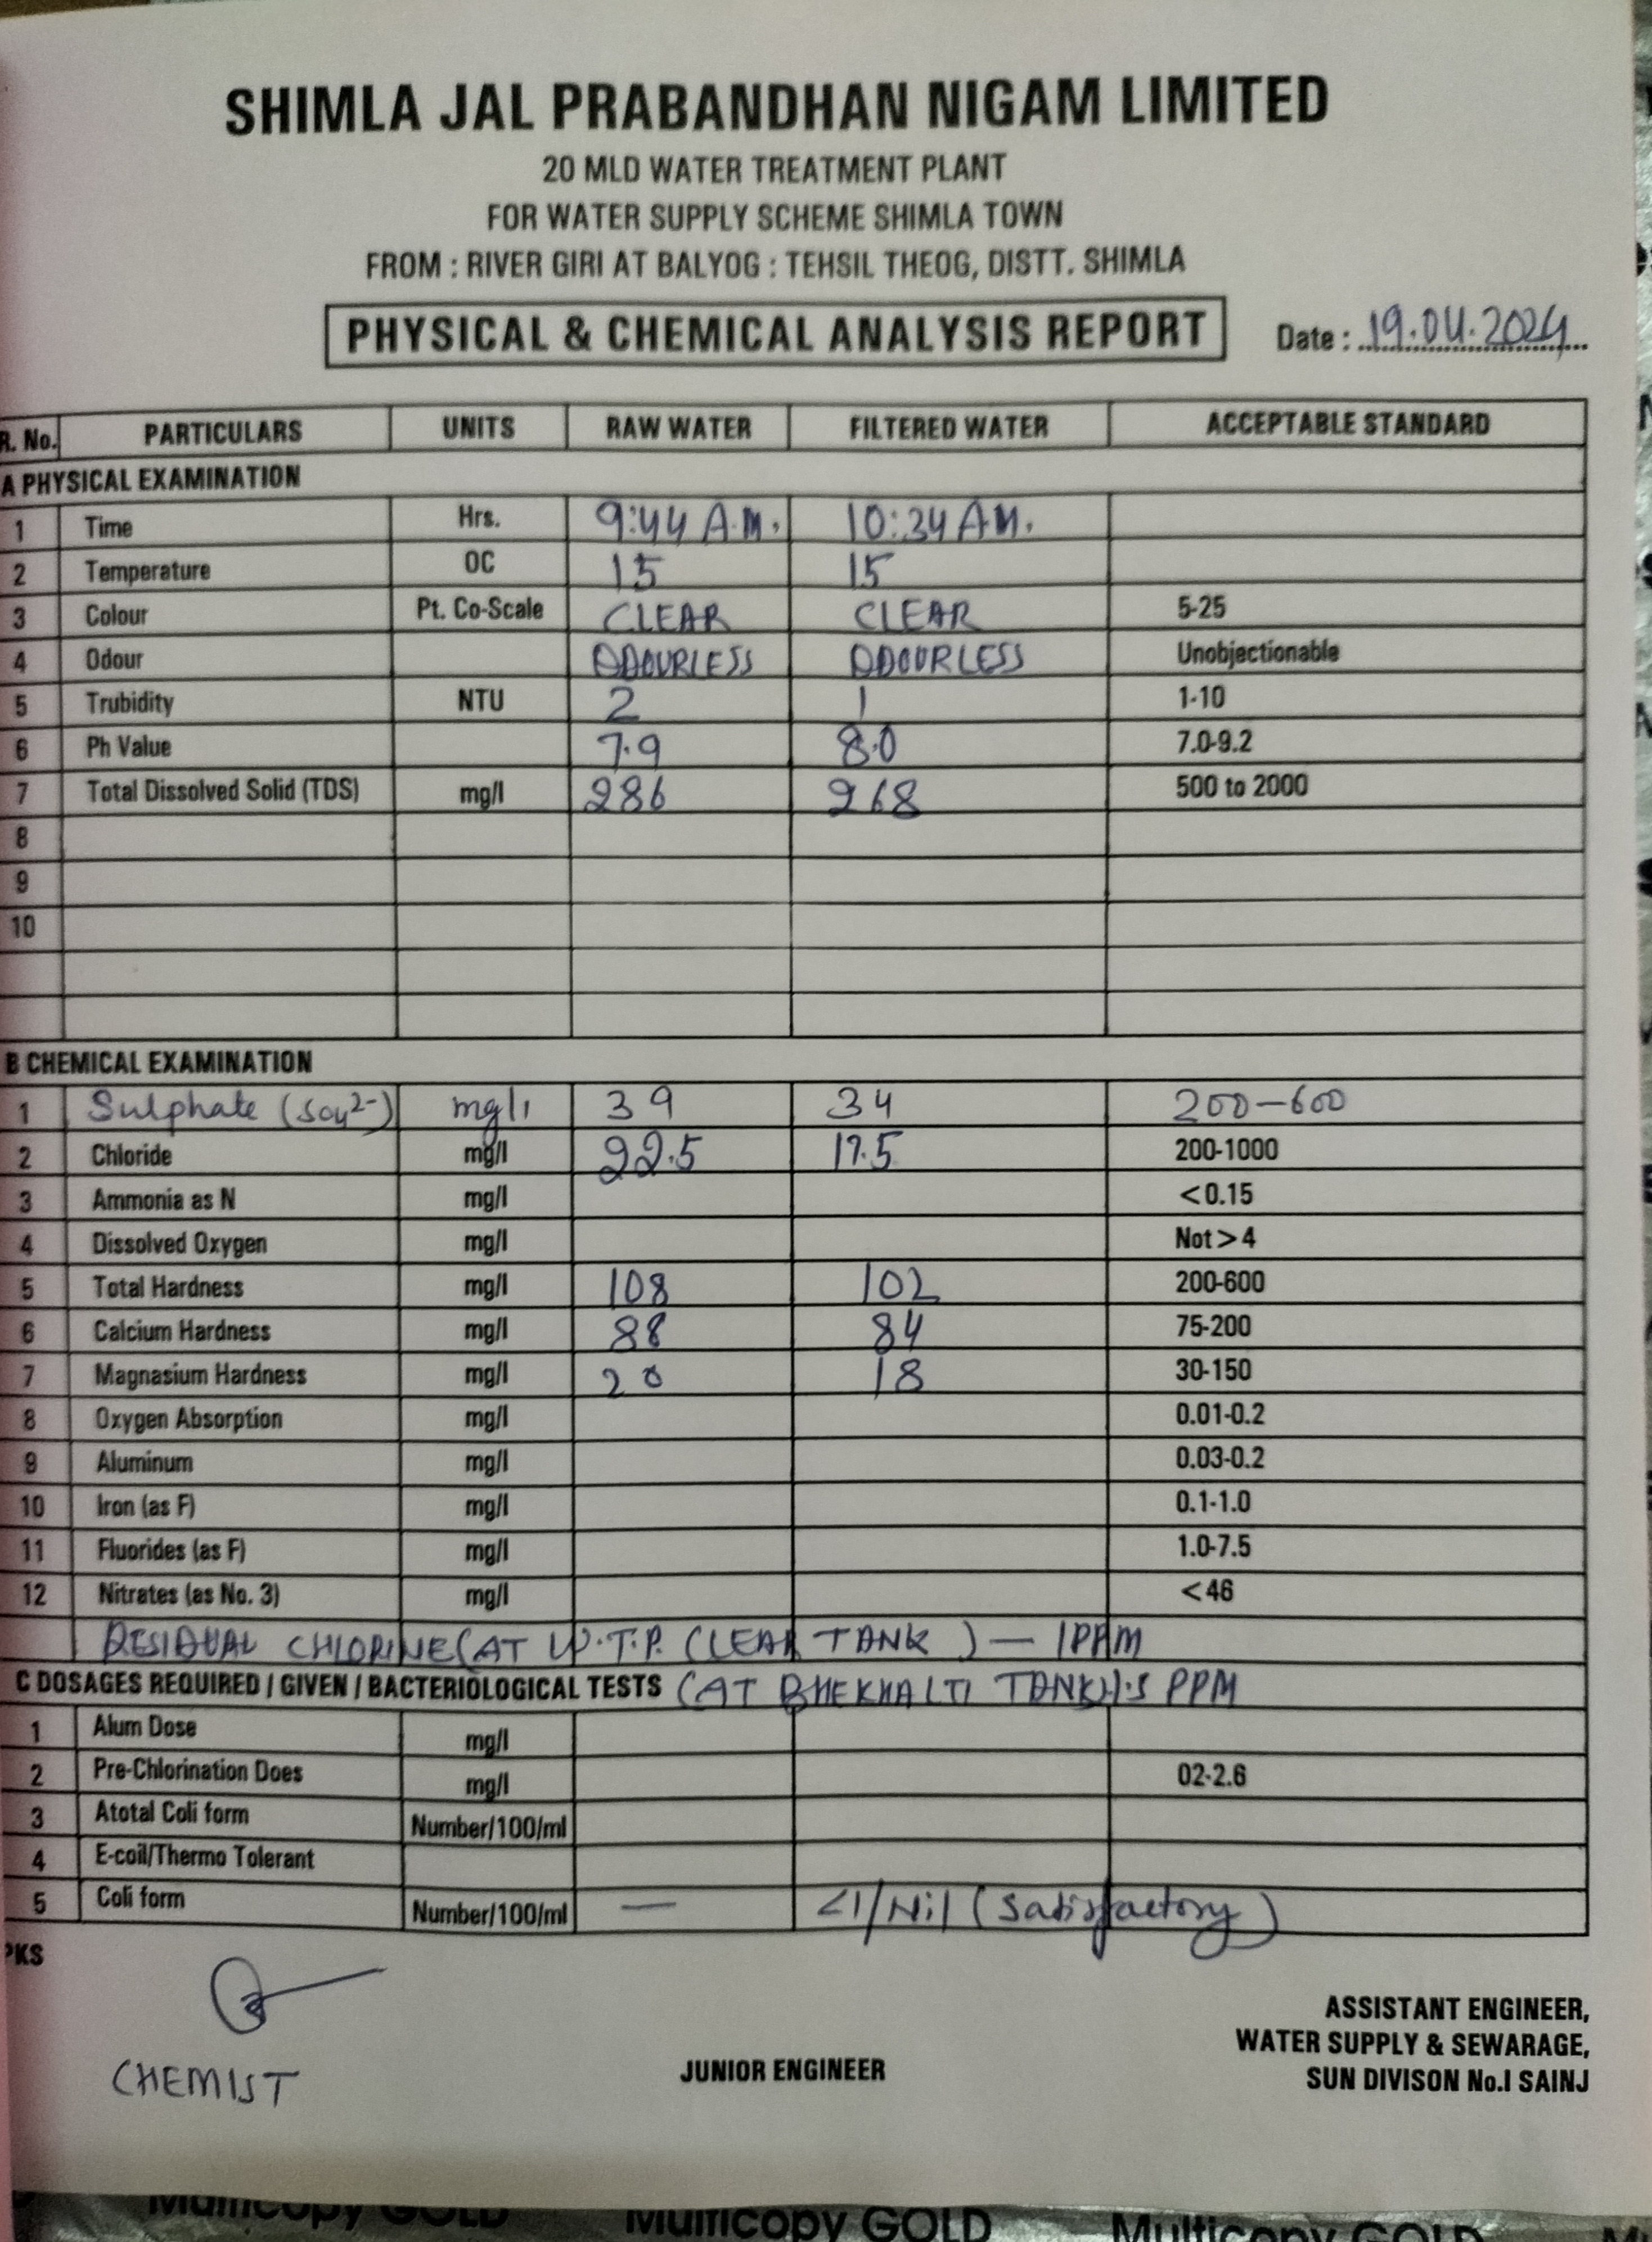 SHIMLA JAL PRABANDHAN NIGAM LIMITED
20 MLD WATER TREATMENT PLANT
FOR WATER SUPPLY SCHEME SHIMLA TOWN
FROM : RIVER GIRI AT BALYOG : TEHSIL THEOG, DISTT. SHIMLA
PHYSICAL & CHEMICAL ANALYSIS REPORT Date : 19.04.2024
R. No. PARTICULARS UNITS RAW WATER FILTERED WATER ACCEPTABLE STANDARD
A PHYSICAL EXAMINATION
1 Time Hrs. 9:44 A.M. 10:34 A.M.
2 Temperature OC 15 15
3 Colour Pt. Co-Scale CLEAR CLEAR 5-25
4 Odour ODOURLESS ODOURLESS Unobjectionable
5 Trubidity NTU 2 1 1-10
6 Ph Value 7.9 8.0 7.0-9.2
7 Total Dissolved Solid (TDS) mg/l 286 268 500 to 2000
8
9
10
B CHEMICAL EXAMINATION
1 Sulphate (SO4 2-) mg/l 39 34 200-600
2 Chloride mg/l 22.5 17.5 200-1000
3 Ammonia as N mg/l <0.15
4 Dissolved Oxygen mg/l Not > 4
5 Total Hardness mg/l 108 102 200-600
6 Calcium Hardness mg/l 88 84 75-200
7 Magnasium Hardness mg/l 20 18 30-150
8 Oxygen Absorption mg/l 0.01-0.2
9 Aluminum mg/l 0.03-0.2
10 Iron (as F) mg/l 0.1-1.0
11 Fluorides (as F) mg/l 1.0-7.5
12 Nitrates (as No. 3) mg/l <46
RESIDUAL CHLORINE (AT W.T.P. CLEAR TANK ) — 1PPM
C DOSAGES REQUIRED / GIVEN / BACTERIOLOGICAL TESTS (AT BHEKHALTI TANK) 1.5 PPM
1 Alum Dose mg/l
2 Pre-Chlorination Does mg/l 02-2.6
3 Atotal Coli form Number/100/ml
4 E-coil/Thermo Tolerant
5 Coli form Number/100/ml — <1/Nil (Satisfactory)
PKS
CHEMIST
JUNIOR ENGINEER
ASSISTANT ENGINEER,
WATER SUPPLY & SEWARAGE,
SUN DIVISON No.I SAINJ
Multicopy GOLD Multicopy GOLD Multicopy GOLD